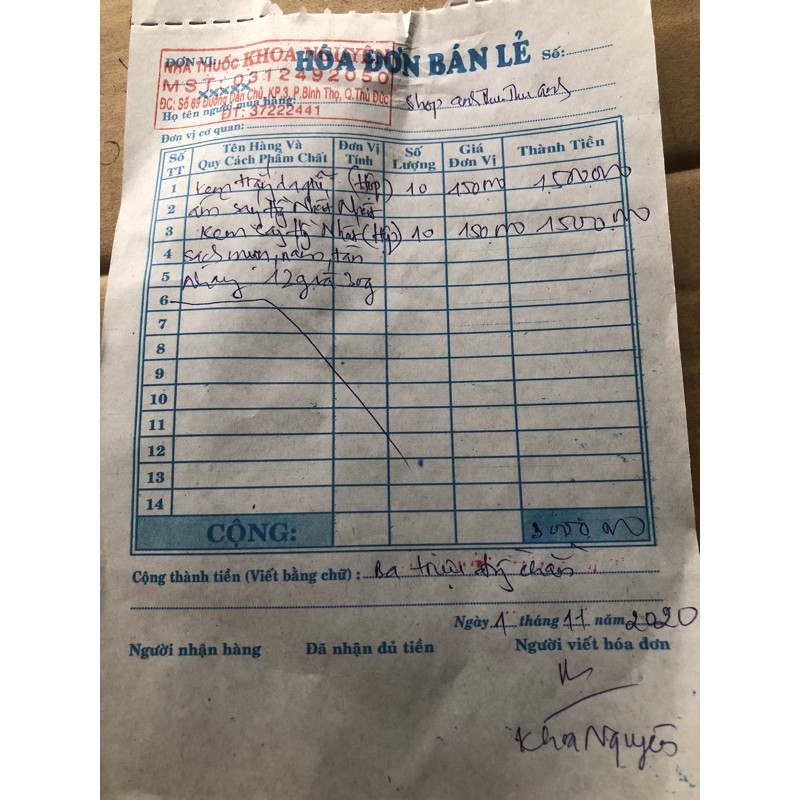 ĐƠN VỊ:
HÓA ĐƠN BÁN LẺ Số:
NHÀ THUỐC KHOA NGUYÊN
MST: 0312492050
xxxxx
ĐC: Số 69 Đường Dân Chủ, KP 3, P.Bình Thọ, Q.Thủ Đức
ĐT: 37222441
Họ tên người mua hàng: Shop
Đơn vị cơ quan:
Số TT Tên Hàng Và Quy Cách Phẩm Chất Đơn Vị Tính Số Lượng Giá Đơn Vị Thành Tiền
1 Kem trắng da (Hộp) 10 150 000 1.500 000
2 Nhật
3 Kem Nhật (Hộp) 10 150 000 1500.000
4 sạch mụn, nám, tàn
5 nhang 12g và 30g
6
7
8
9
10
11
12
13
14
CỘNG: 3 000 000
Cộng thành tiền (Viết bằng chữ) : Ba triệu đg chẵn
Ngày 1 tháng 11 năm 2020
Người nhận hàng Đã nhận đủ tiền Người viết hóa đơn
Khoa Nguyên